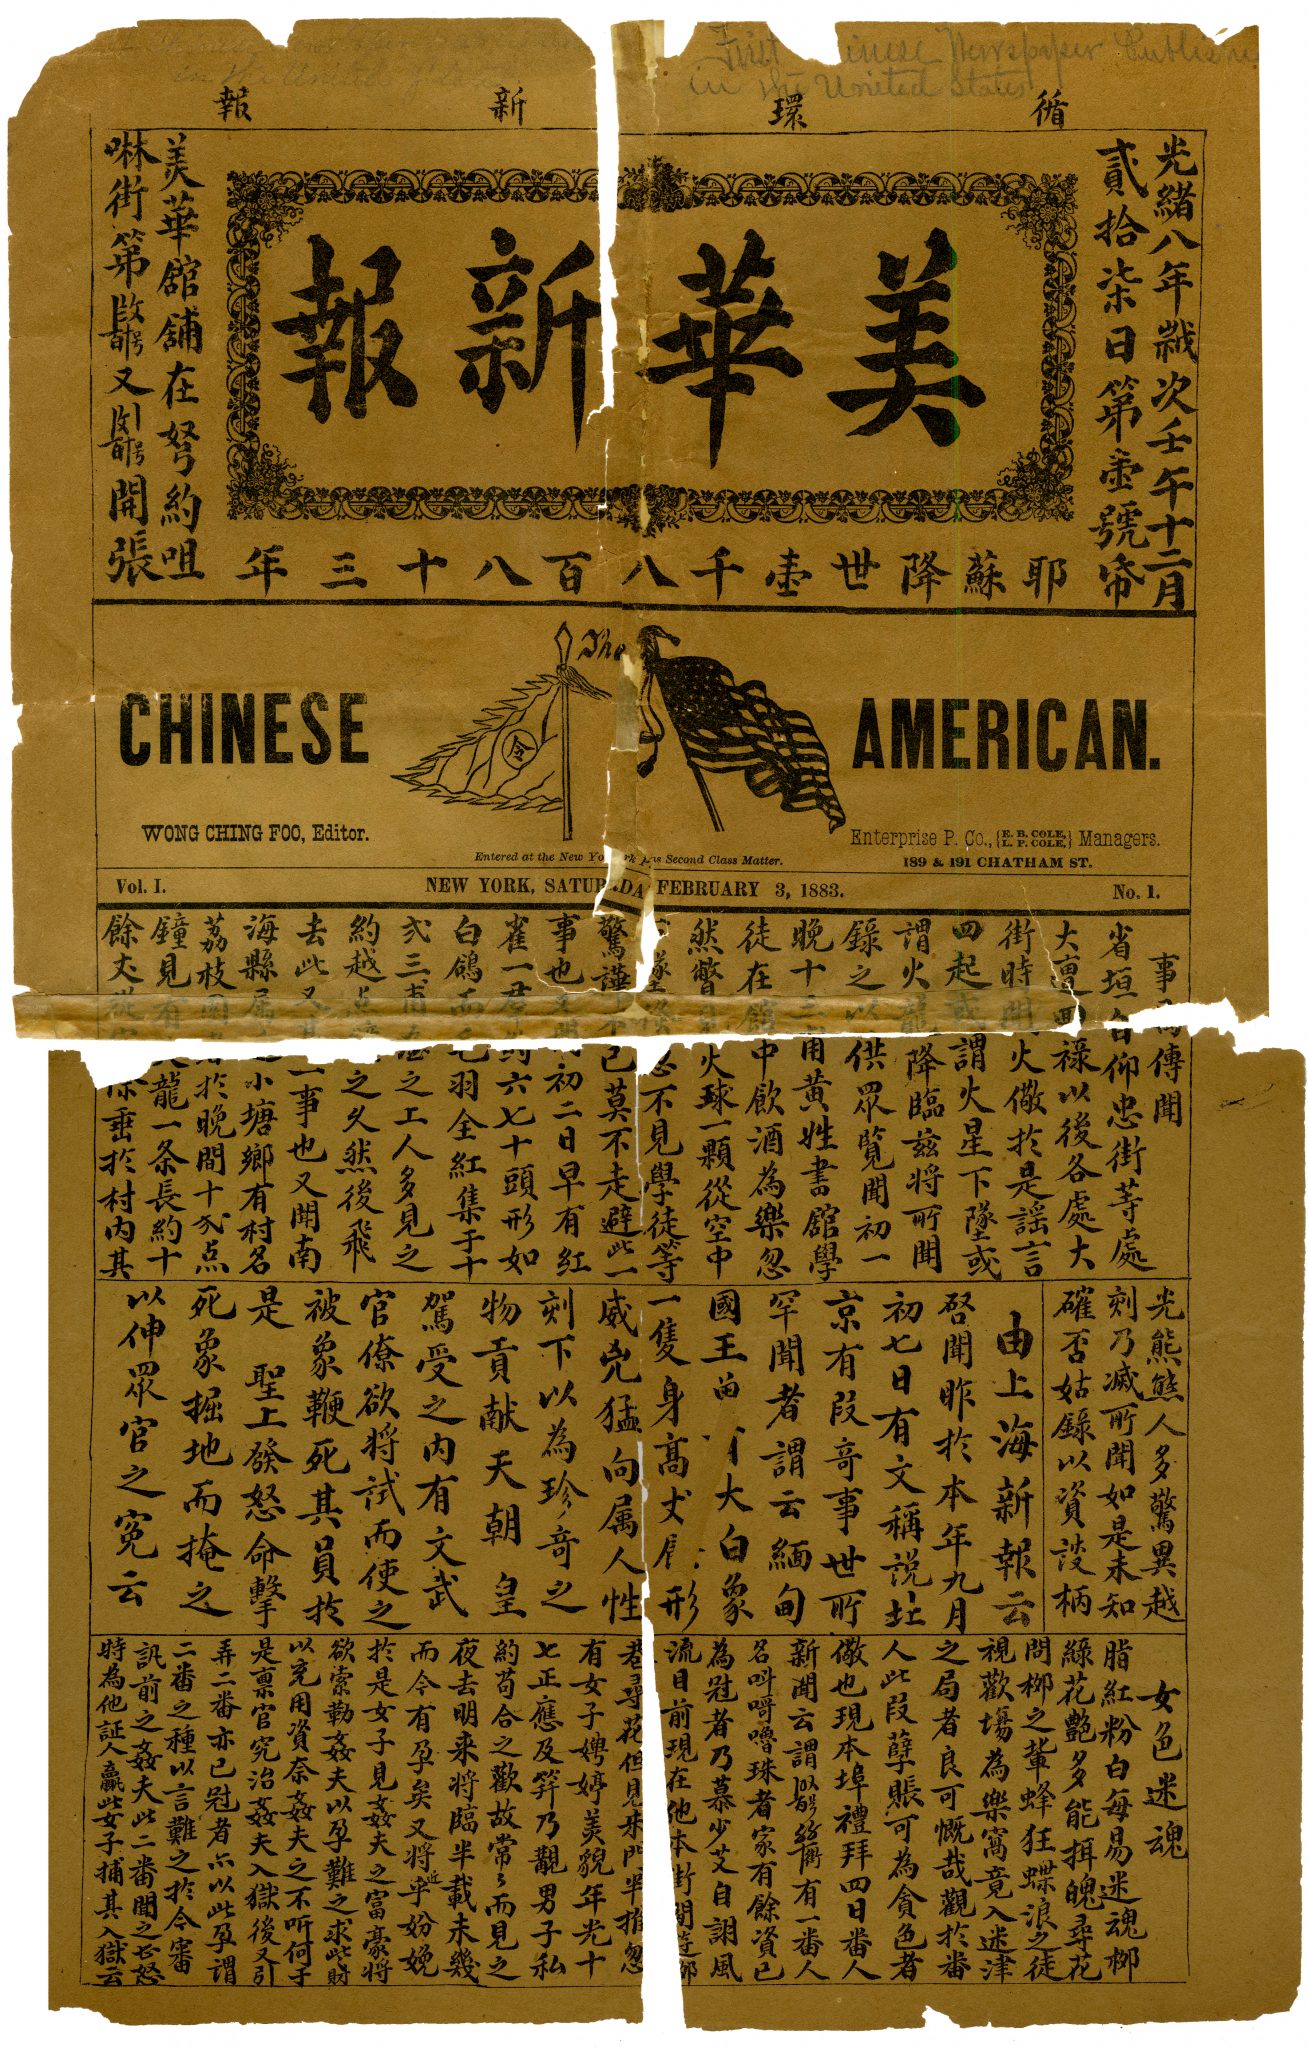 First Chinese Newspaper Publishe
in the United States
循環新報
光緒八年歲次壬午十二月
貳拾柒日第壹號帋
美華新報
美華舘舖在孥約咀
啉街第
又
開張
耶蘇降世壹千八百八十三年
The
CHINESE
AMERICAN.
令
WONG CHING FOO, Editor.
Enterprise P. Co., {E. B. COLE, L. P. COLE,} Managers.
189 & 191 CHATHAM ST.
Entered at the New Yo rk as Second Class Matter.
Vol. I.
NEW YORK, SATURDA FEBRUARY 3, 1883.
No. 1.
事 傳聞
省垣自仰忠街等處
大 祿以後各處大
街時聞火儆於是謡言
四起或謂火星下墜或
謂火龍降臨兹將所聞
錄之以供眾覽聞初一
晚十三甫黄姓書舘學
徒在舘中飲酒為樂忽
然瞥見火球一顆從空中
墜 忽不見學徒等
驚譁不已莫不走避此一
事也又聞初二日早有紅
雀一群約六七十頭形如
白鴿而毛羽全紅集于十
弍三甫 之工人多見之
約越 点 之久然後飛
去此又 一事也又聞南
海縣属 小塘鄉有村名
荔枝園 於晚間十弍点
鐘見有火龍一条長約十
餘丈從 垂於村内其
光熊熊人多驚異越
刻乃滅所聞如是未知
確否姑錄以資談柄
由上海新報云
啓聞昨於本年九月
初七日有文稱説北
京有段奇事世所
罕聞者謂云緬甸
國王 大白象
一隻身高丈 形
威兇猛向属人性
刻下以為珍奇之
物貢献天朝 皇
駕受之内有文武
官僚欲將試而使之
被象鞭死其員於
是 聖上發怒命擊
死象掘地而掩之
以伸眾官之冤云
女色迷魂
脂紅粉白每易迷魂柳
綠花艷多能揖魄尋花
問柳之輩蜂狂蝶浪之徒
視歡塲為樂窩竟入迷津
之局者良可慨哉觀於番
人此段孽賬可為貪色者
儆也現本埠禮拜四日番人
新聞云謂 有一番人
名呌嗬嚕珠者家有餘資已
為冠者乃慕少艾自謝風
流目前現在他本街
若尋花但見朱門半推忽
有女子娉婷美貌年光十
七正應及笄乃覯男子私
約苟合之歡故常々而見之
夜去明来將臨半載未幾
而今有孕矣又將近乎妢娩
於是女子見姦夫之富豪將
欲索勒姦夫以孕難之求些財
以充用資奈姦夫之不听何于
是禀官究治姦夫入獄後又引
弄二番亦已冠者亦以此孕謂
二番之種以言難之於今審
訊前之姦夫此二番聞之甚怒
時為他証人贏此女子捕其入獄云